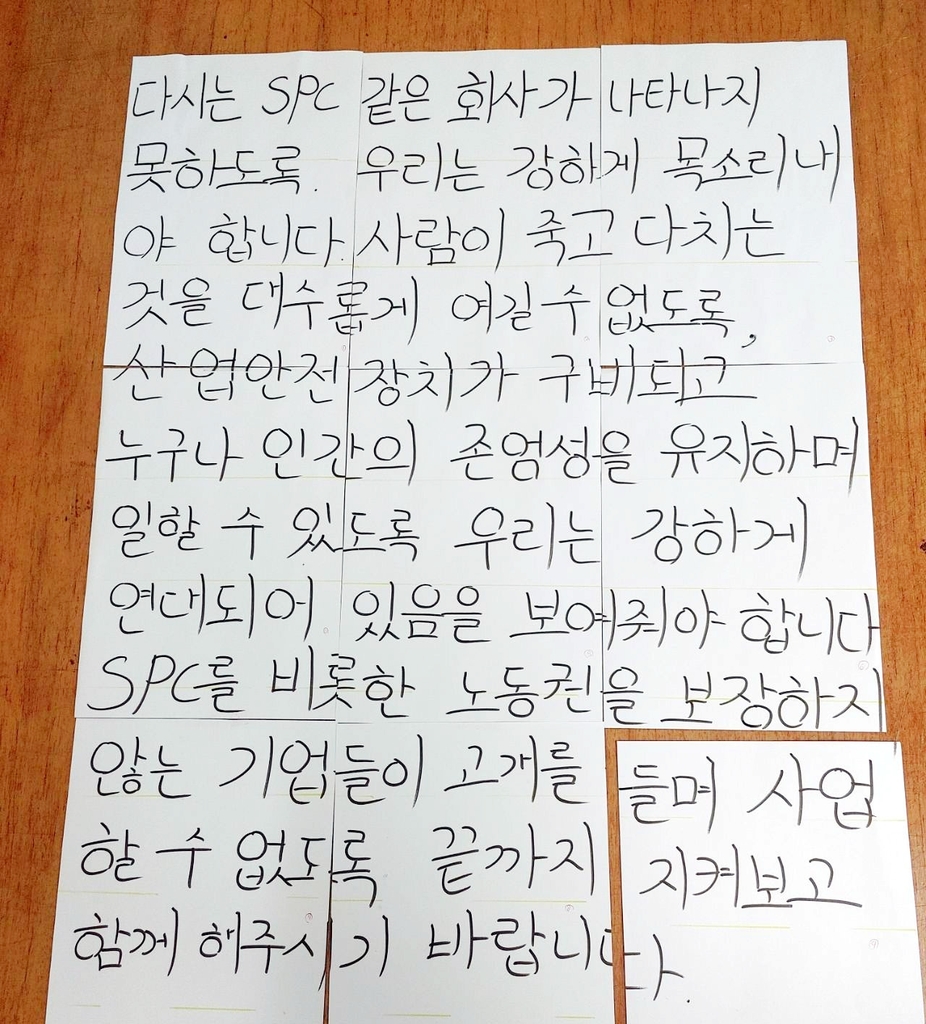 다시는 SPC 같은 회사가 나타나지
못하도록. 우리는 강하게 목소리내
야 합니다. 사람이 죽고 다치는
것을 대수롭게 여길 수 없도록,
산업안전 장치가 구비되고
누구나 인간의 존엄성을 유지하며
일할 수 있도록 우리는 강하게
연대되어 있음을 보여줘야 합니다
SPC를 비롯한 노동권을 보장하지
않는 기업들이 고개를 들며 사업
할 수 없도록 끝까지 지켜보고
함께 해주시기 바랍니다.